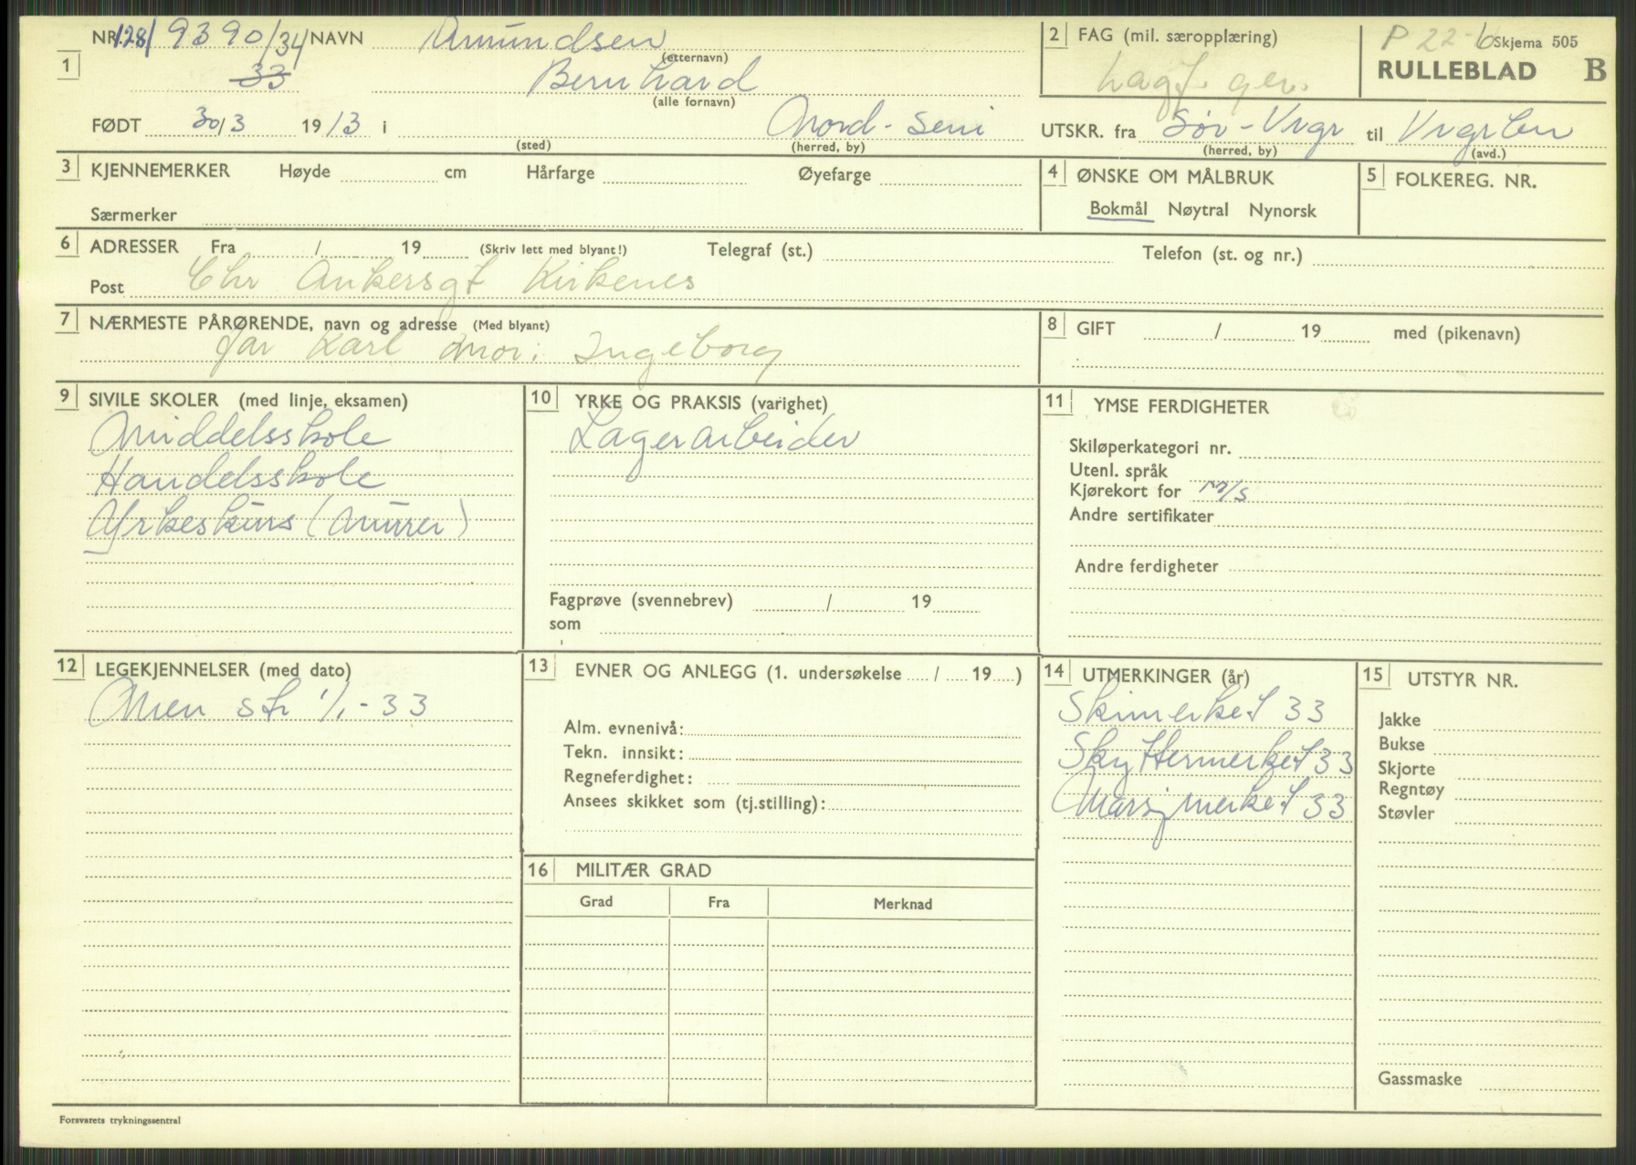 1 NR. 128/ 9390/34 NAVN Amundsen
(etternavn)
33 Bernhard
(alle fornavn)
FØDT 30/3 1913 i Nord-
(sted) (herred, by)
2 FAG (mil. særopplæring)
P 22-6 Skjema 505
RULLEBLAD B
UTSKR. fra Sør-Vrgr til Vrgrbn
(herred, by) (avd.)
3 KJENNEMERKER Høyde cm Hårfarge Øyefarge
Særmerker
4 ØNSKE OM MÅLBRUK
Bokmål Nøytral Nynorsk
5 FOLKEREG. NR.
6 ADRESSER Fra / 19 (Skriv lett med blyant!) Telegraf (st.) Telefon (st. og nr.)
Post Chr Ankersgt Kirkenes
7 NÆRMESTE PÅRØRENDE, navn og adresse (Med blyant)
far Karl mor: Ingeborg
8 GIFT / 19 med (pikenavn)
9 SIVILE SKOLER (med linje, eksamen)
Middelsskole
Handelsskole
Yrkeskurs (Murer)
10 YRKE OG PRAKSIS (varighet)
Lagerarbeider
Fagprøve (svennebrev) / 19
som
11 YMSE FERDIGHETER
Skiløperkategori nr.
Utenl. språk
Kjørekort for m/s
Andre sertifikater
Andre ferdigheter
12 LEGEKJENNELSER (med dato)
str 1/1-33
13 EVNER OG ANLEGG (1. undersøkelse / 19 )
Alm. evnenivå:
Tekn. innsikt:
Regneferdighet:
Ansees skikket som (tj.stilling):
14 UTMERKINGER (år)
Skimerket 33
Skyttermerket 33
Marsjmerket 33
15 UTSTYR NR.
Jakke
Bukse
Skjorte
Regntøy
Støvler
Gassmaske
16 MILITÆR GRAD
Grad Fra Merknad
Forsvarets trykningssentral